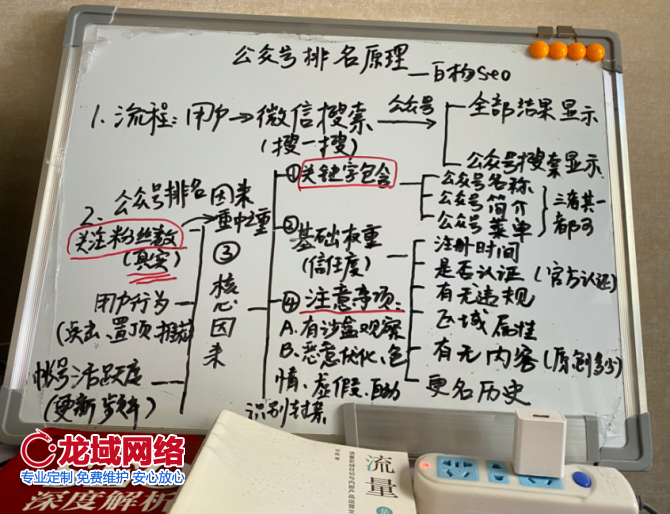 公众号排名原理—百构seo
1.流程:用户→微信搜索
(搜一搜)
公众号
全部结果显示
公众号搜索显示
2、公众号排名因来
①关键字包含
公众号名称
公众号简介
公众号菜单
三者其一
都可
关注粉丝数
(真实)
重中之重
③
核心因来
用户行为
帐号活跃度
②
基础权重
(信任度)
注册时间
是否认证(官方认证)
有无违规
区域属性
有无内容(原创多少)
更名历史
④注意事项:
A.有沙盒观察
B.恶意优化、色
情、虚假、自动
识别封禁
龙域网络
专业定制 免费维护 安心放心
深度解析
流量